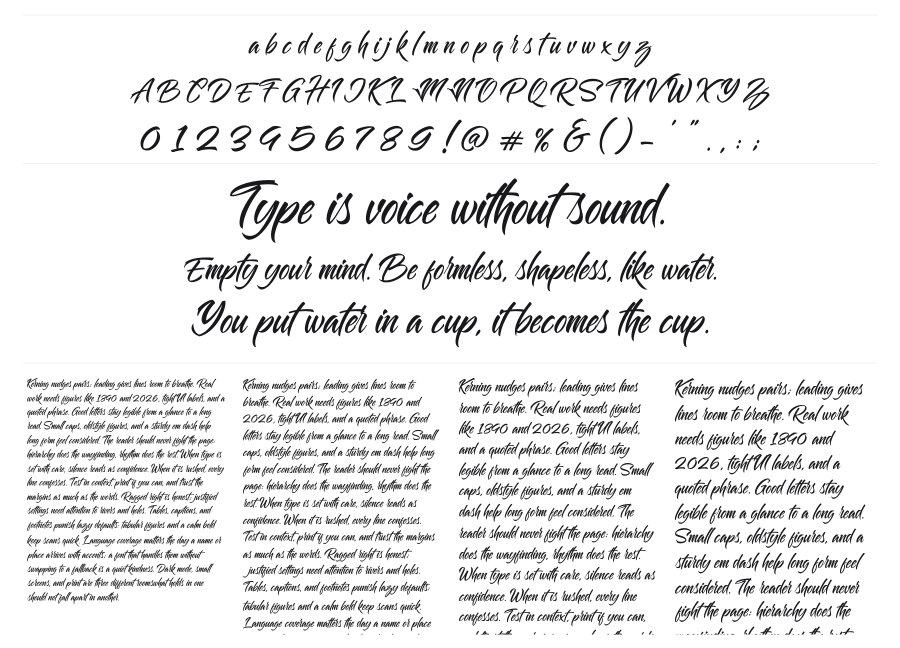 a b c d e f g h i j k l m n o p q r s t u v w x y z
A B C D E F G H I J K L M N O P Q R S T U V W X Y Z
0 1 2 3 4 5 6 7 8 9 ! @ # % & ( ) - ' " . , : ;
Type is voice without sound.
Empty your mind. Be formless, shapeless, like water.
You put water in a cup, it becomes the cup.
Kerning nudges pairs; leading gives lines room to breathe. Real
work needs figures like 1890 and 2026, tight UI labels, and a
quoted phrase. Good letters stay legible from a glance to a long
read. Small caps, oldstyle figures, and a sturdy em dash help
long form feel considered. The reader should never fight the page:
hierarchy does the wayfinding, rhythm does the rest. When type is
set with care, silence reads as confidence. When it is rushed, every
line confesses. Test in context, print if you can, and trust the
margins as much as the words. Ragged right is honest; justified
settings need attention to rivers and holes. Tables, captions, and
footnotes punish lazy defaults: tabular figures and a calm bold
keep scans quick. Language coverage matters the day a name or
place arrives with accents; a font that handles them without
swapping to a fallback is a quiet kindness. Dark mode, small
screens, and print are three different rooms; what holds in one
should not fall apart in another.
Kerning nudges pairs; leading gives lines room to
breathe. Real work needs figures like 1890 and
2026, tight UI labels, and a quoted phrase. Good
letters stay legible from a glance to a long read. Small
caps, oldstyle figures, and a sturdy em dash help long
form feel considered. The reader should never fight the
page: hierarchy does the wayfinding, rhythm does the
rest. When type is set with care, silence reads as
confidence. When it is rushed, every line confesses.
Test in context, print if you can, and trust the margins
as much as the words. Ragged right is honest;
justified settings need attention to rivers and holes.
Tables, captions, and footnotes punish lazy defaults:
tabular figures and a calm bold keep scans quick.
Language coverage matters the day a name or place
Kerning nudges pairs; leading gives lines
room to breathe. Real work needs figures
like 1890 and 2026, tight UI labels,
and a quoted phrase. Good letters stay
legible from a glance to a long read. Small
caps, oldstyle figures, and a sturdy em
dash help long form feel considered. The
reader should never fight the page: hierarchy
does the wayfinding, rhythm does the rest.
When type is set with care, silence reads as
confidence. When it is rushed, every line
confesses. Test in context, print if you can,
Kerning nudges pairs; leading gives
lines room to breathe. Real work
needs figures like 1890 and
2026, tight UI labels, and a
quoted phrase. Good letters stay
legible from a glance to a long read.
Small caps, oldstyle figures, and a
sturdy em dash help long form feel
considered. The reader should never
fight the page: hierarchy does the